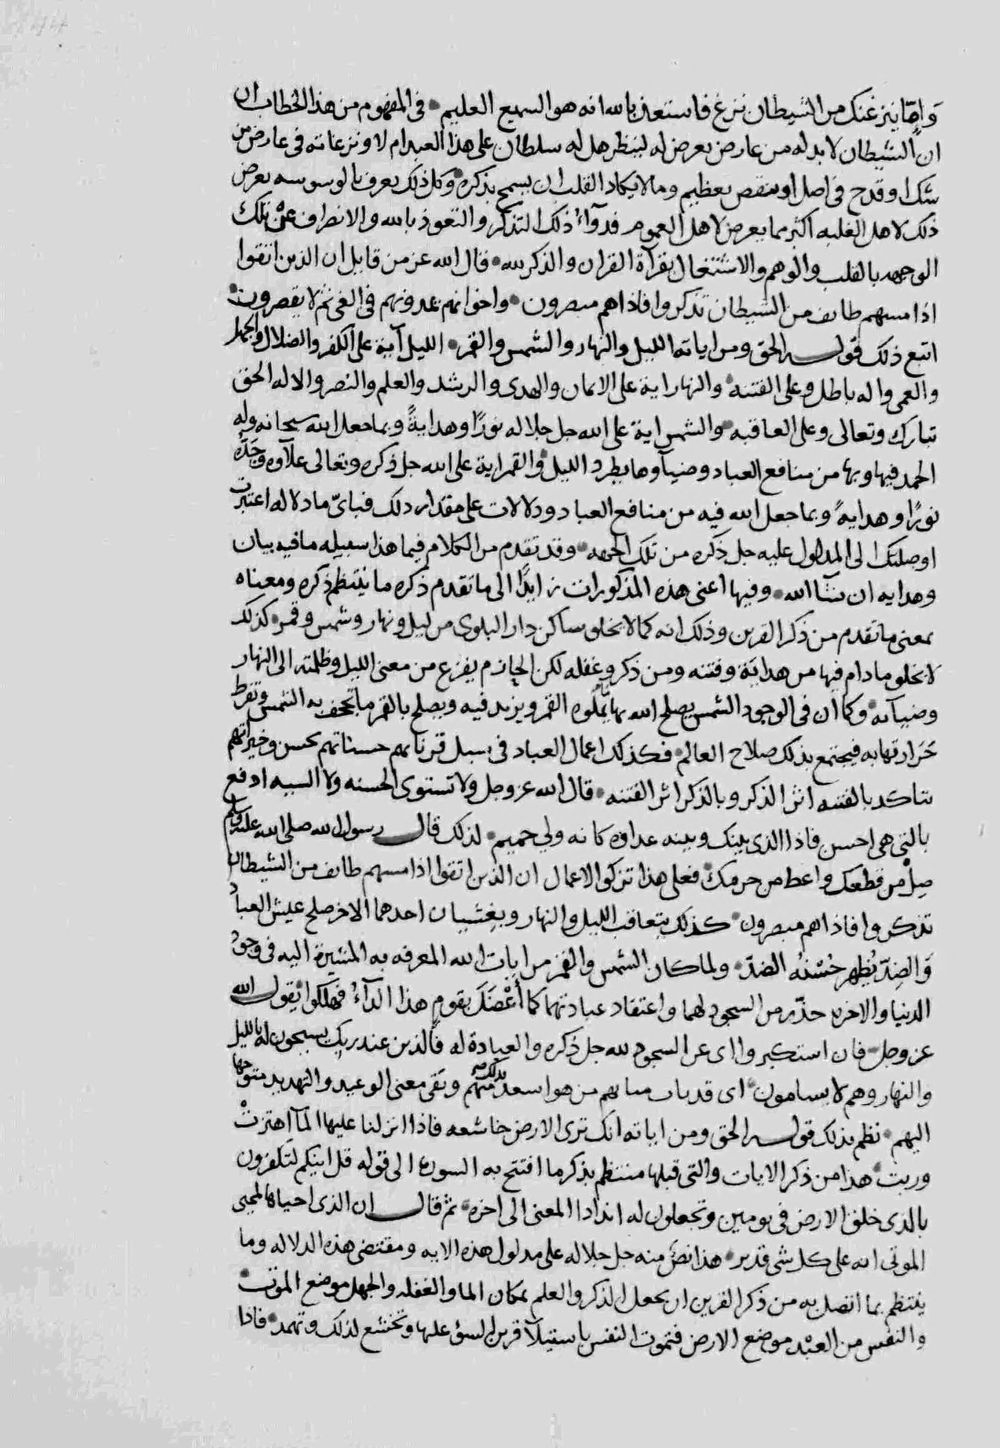 واما ينزغنك من الشيطان نزغ فاستعذ بالله انه هو السميع العليم في المفهوم من هذا الخطاب ان
ان الشيطان لا بد له من عارض يعرض له لينظر هل له سلطان على هذا العبد ام لا ونزغاته في عارض من
شك او قدح في اصل او بنقص بعظيم وما لا يكاد القلب ان يسمح بذكره وكل ذلك يعرف بالوسوسه يعرض
ذلك لاهل الغلبه اكثر مما يعرض لاهل العموم فدوآء ذلك التذكر والتعوذ بالله والانصراف عن تلك
الوجهه بالقلب والوهم والاشتغال بقرآة القران والذكر لله قال الله عز من قايل ان الذين اتقوا
اذا مسهم طايف من الشيطان تذكروا فاذا هم مبصرون واخوانهم يمدونهم في الغي ثم لا يقصرون
اتبع ذلك قوله الحق ومن اياته الليل والنهار والشمس والقمر الليل آية على الكفر والضلال والجهل
والعمى واله باطل وعلى الفتنة والنهار اية على الايمان والهدى والرشد والعلم والنصر والاله الحق
تبارك وتعالى وعلى العاقبه والشمس اية على الله جل جلاله نورًا وهدايةً وبما جعل الله سبحانه وله
الحمد فيها وبها من منافع العباد وضيآوها يطرد الليل والقمر اية على الله جل ذكره وتعالى علآوه وجَدّه
نورًا وهدايةً وبما جعل الله فيه من منافع العباد ودلالات على مقدار ذلك فباىّ ما دلاله اعتبرت
اوصلتك الى المدلول عليه جل ذكره من تلك الجهه وقد تقدم من الكلام فيما هذا سبيله ما فيه بيان
وهدايه ان شآ الله وفيها اعني هذه المذكورات زايدًا الى ما تقدم ذكره ما ينتظم ذكره ومعناه
بمعنى ما تقدم من ذكر القرين وذلك انه كما لا يخلو ساكن دار البلوى من ليل ونهار وشمس وقمر كذلك
لا يخلو ما دام فيها من هداية وفتنه ومن ذكر وغفله لكن الحازم يفزع من معنى الليل وظلمته الى النهار
وضيآئه وكما ان في الوجود الشمس يصلح الله بها يتلوه القمر ويزيد فيه ويصلح بالقمر ما تجحف به الشمس وتفرط
حَرارتها به فيجتمع بذلك صلاح العالم فكذلك اعمال العباد في سبل قرناتهم حسناتهم يحسن وخيراتهم
يتاكد بالفتنه اثر الذكر وبالذكر اثر الفتنه قال الله عز وجل ولا تستوي الحسنه ولا السيه ادفع
بالتي هي احسن فاذا الذي بينك وبينه عداوه كانه ولي حميم لذلك قال رسول الله صلى الله عليه وسلم
صِلْ من قطعك واعط من حرمك فعلى هذا تزكو الاعمال ان الذين اتقوا اذا مسهم طايف من الشيطان
تذكروا فاذا هم مبصرون كذلك يتعاقب الليل والنهار ويغشيان احدهما الاخر صلح عيش العباد
وَالضِدّ يُظهر حُسْنُه الضدّ ولما كان الشمس والقمر من ايات الله المعرفه به المشيرة اليه في وجود
الدنيا والاخره حذّر من السجود لهما واعتقاد عبادتهما كما أعْضَل بقومٍ هذا الدآء فهلكوا يقول الله
عز وجل فان استكبروا اى عن السجود لله جل ذكره والعبادة له فالذين عند ربك يسبحون له بالليل
والنهار وهم لا يسامون اى قد بان مسابهم من هو اسعد بذلك منهم وبقى معنى الوعيد والتهديد متوجها
اليهم نظم بذلك قوله الحق ومن اياته انك ترى الارض خاشعه فاذا انزلنا عليها المآ اهتزتْ
وربت هذا من ذكر الايات والتي قبلها منتظم بذكر ما افتتح به السورة الى قوله قل ائنكم لتكفرون
بالذي خلق الارض في يومين وتجعلون له اندادا المعنى الى اخره ثم قال ان الذي احياها لمحيى
الموتى انه على كل شي قدير هذا نصّ منه جل جلاله على مدلول هذه الايه ومقتضى هذه الدلاله وما
ينتظم بما اتصل به من ذكر القرين ان يجعل الذكر والعلم بمكان الما والغفله والجهل موضع الموت
والنفس من العبْد موضع الارض فتموت النفس باستيلآ قرين السؤ عليها وتخشع لذلك وتهمد فاذا